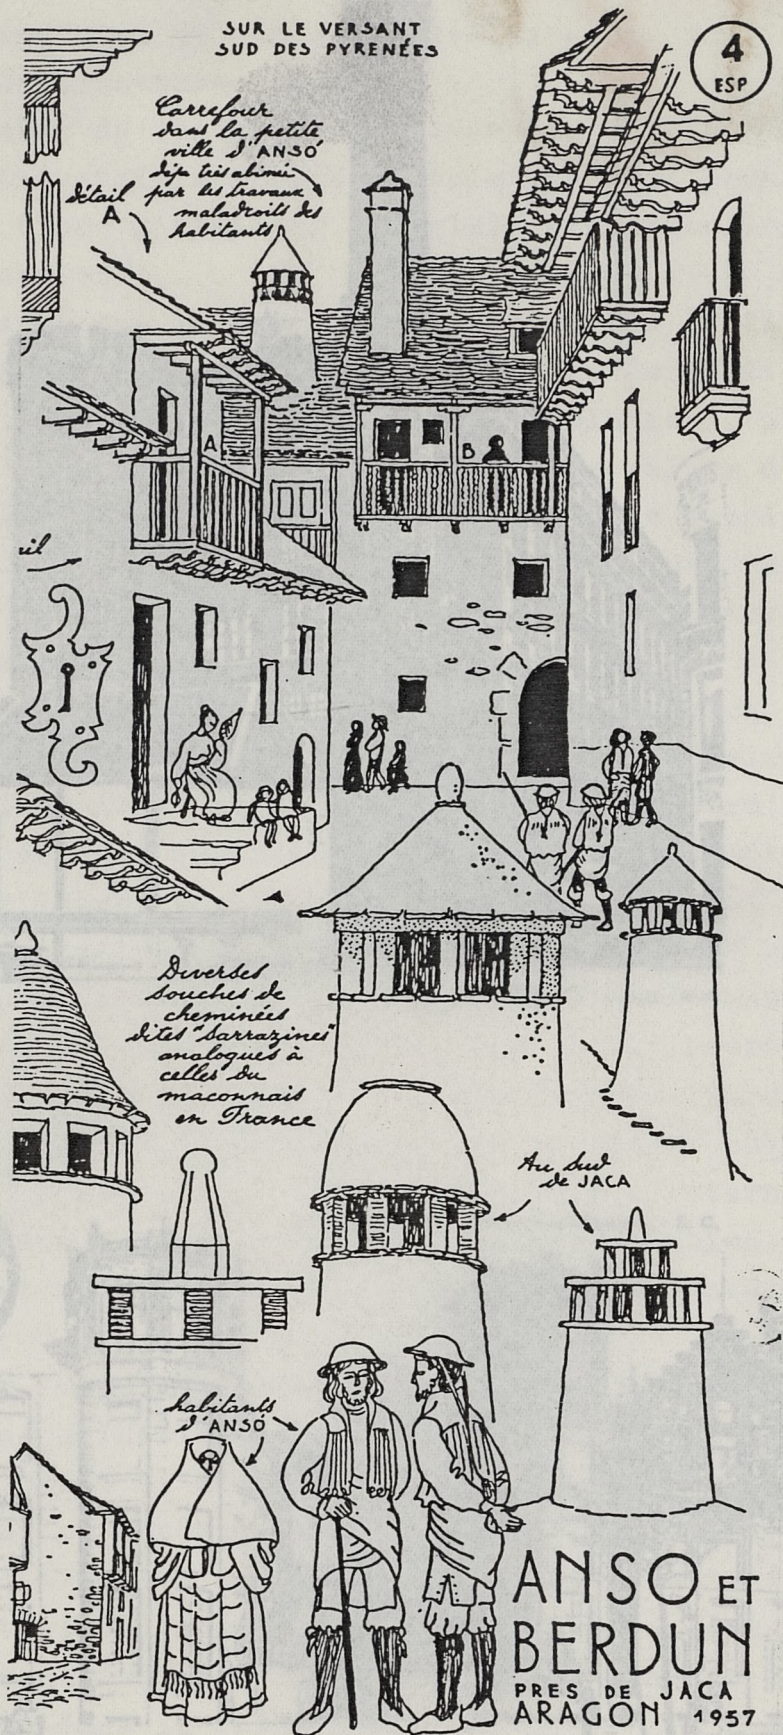 SUR LE VERSANT
SUD DES PYRENÉES
4
ESP
Carrefour
dans la petite
ville d'ANSÓ
déja très abimé
par les travaux
maladroits des
habitants
détail
A
A
B
Diverses
souches de
cheminées
dites "Sarrazines"
analogues à
celles du
maconnais
en France
Au Sud
de JACA
habitants
d'ANSÓ
ANSO ET
BERDUN
PRES DE JACA
ARAGON 1957